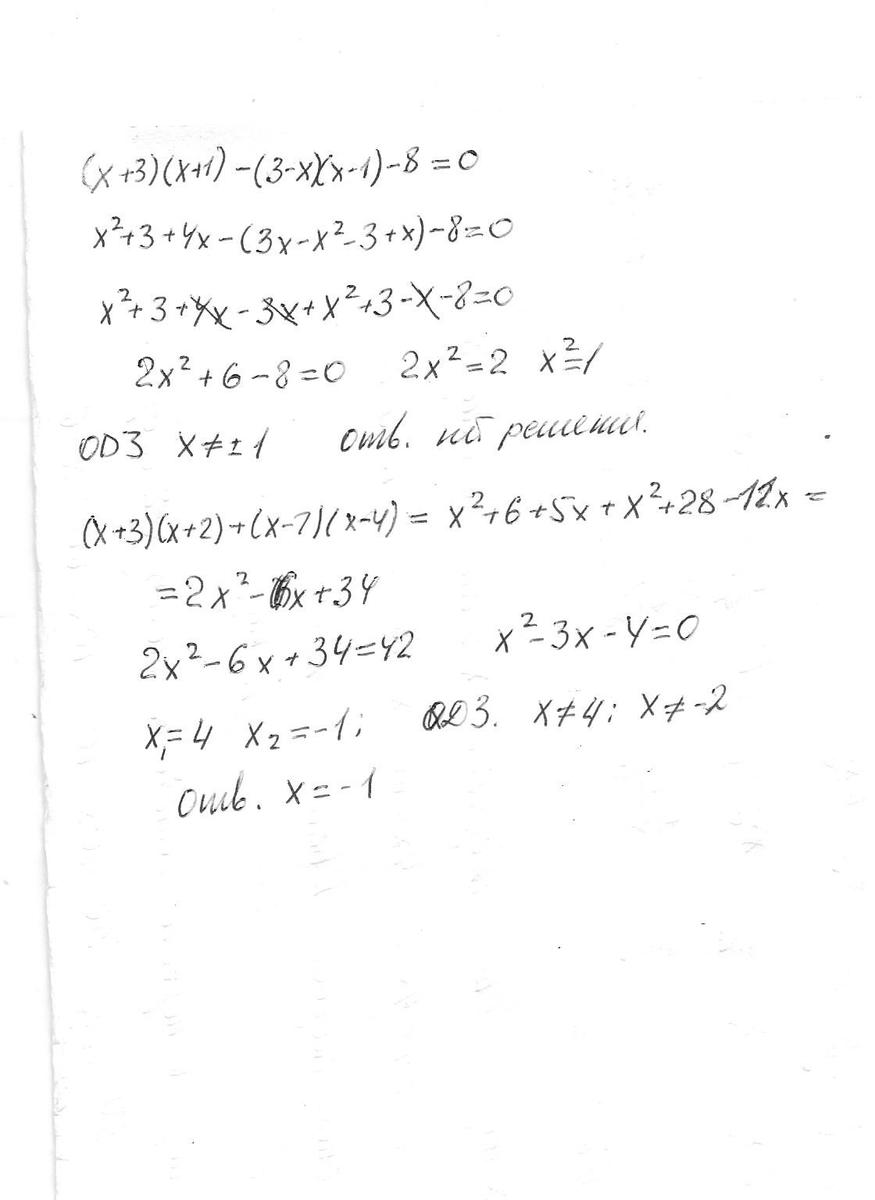 (x+3)(x+1)-(3-x)(x-1)-8=0
x²+3+4x-(3x-x²-3+x)-8=0
x²+3+4x-3x+x²+3-x-8=0
2x²+6-8=0 2x²=2 x²=1
ОДЗ x≠±1 отв. нет решения.
(x+3)(x+2)+(x-7)(x-4)= x²+6+5x+x²+28-11x=
=2x²-6x+34
2x²-6x+34=42 x²-3x-4=0
x₁=4 x₂=-1; ОДЗ. x≠4; x≠-2
Отв. x=-1